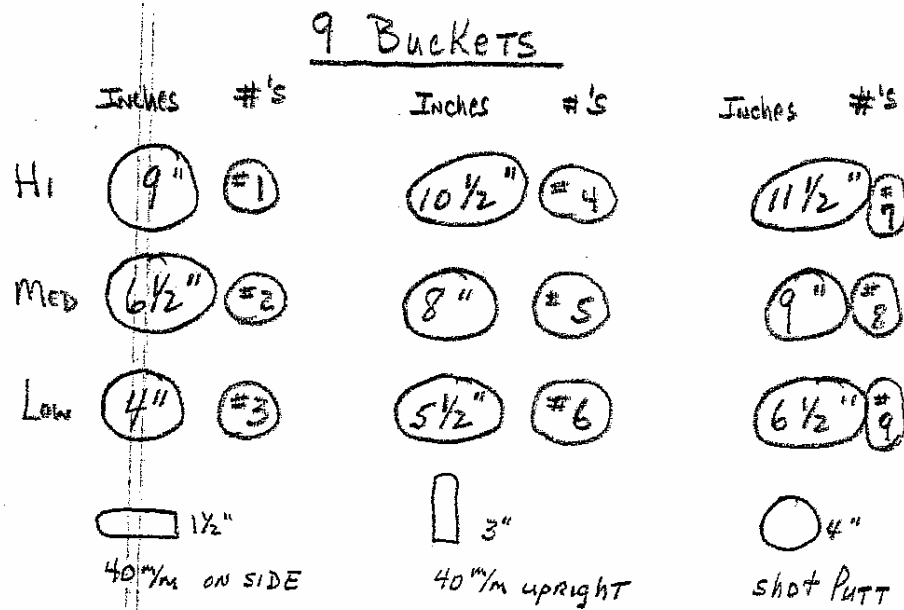 9 Buckets
Inches #'s Inches #'s Inches #'s
Hi 9" #1 10 1/2" #4 11 1/2" #7
Med 6 1/2" #2 8" #5 9" #8
Low 4" #3 5 1/2" #6 6 1/2" #9
1 1/2" 3" 4"
40 m/m on side 40 m/m upright shot Putt